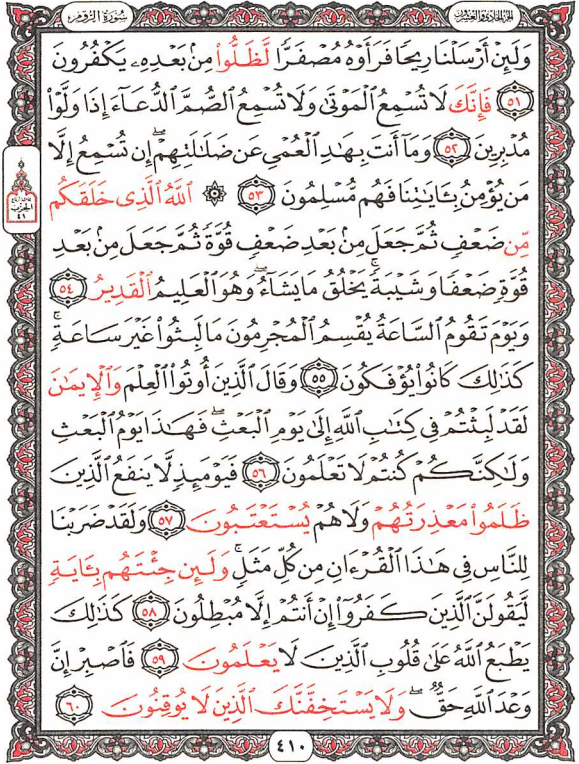 الجزء الحادي والعشرون
سورة الروم
وَلَئِنْ أَرْسَلْنَا رِيحًا فَرَأَوْهُ مُصْفَرًّا لَّظَلُّوا۟ مِنۢ بَعْدِهِۦ يَكْفُرُونَ
۝٥١ فَإِنَّكَ لَا تُسْمِعُ ٱلْمَوْتَىٰ وَلَا تُسْمِعُ ٱلصُّمَّ ٱلدُّعَآءَ إِذَا وَلَّوْا۟
مُدْبِرِينَ ۝٥٢ وَمَآ أَنتَ بِهَـٰدِ ٱلْعُمْىِ عَن ضَلَـٰلَتِهِمْ ۖ إِن تُسْمِعُ إِلَّا
مَن يُؤْمِنُ بِـَٔايَـٰتِنَا فَهُم مُّسْلِمُونَ ۝٥٣ ۞ ٱللَّهُ ٱلَّذِى خَلَقَكُم
مِّن ضَعْفٍ ثُمَّ جَعَلَ مِنۢ بَعْدِ ضَعْفٍ قُوَّةً ثُمَّ جَعَلَ مِنۢ بَعْدِ
قُوَّةٍ ضَعْفًا وَشَيْبَةً ۚ يَخْلُقُ مَا يَشَآءُ ۖ وَهُوَ ٱلْعَلِيمُ ٱلْقَدِيرُ ۝٥٤
وَيَوْمَ تَقُومُ ٱلسَّاعَةُ يُقْسِمُ ٱلْمُجْرِمُونَ مَا لَبِثُوا۟ غَيْرَ سَاعَةٍ ۚ
كَذَٰلِكَ كَانُوا۟ يُؤْفَكُونَ ۝٥٥ وَقَالَ ٱلَّذِينَ أُوتُوا۟ ٱلْعِلْمَ وَٱلْإِيمَـٰنَ
لَقَدْ لَبِثْتُمْ فِى كِتَـٰبِ ٱللَّهِ إِلَىٰ يَوْمِ ٱلْبَعْثِ ۖ فَهَـٰذَا يَوْمُ ٱلْبَعْثِ
وَلَـٰكِنَّكُمْ كُنتُمْ لَا تَعْلَمُونَ ۝٥٦ فَيَوْمَئِذٍ لَّا يَنفَعُ ٱلَّذِينَ
ظَلَمُوا۟ مَعْذِرَتُهُمْ وَلَا هُمْ يُسْتَعْتَبُونَ ۝٥٧ وَلَقَدْ ضَرَبْنَا
لِلنَّاسِ فِى هَـٰذَا ٱلْقُرْءَانِ مِن كُلِّ مَثَلٍ ۚ وَلَئِن جِئْتَهُم بِـَٔايَةٍ
لَّيَقُولَنَّ ٱلَّذِينَ كَفَرُوٓا۟ إِنْ أَنتُمْ إِلَّا مُبْطِلُونَ ۝٥٨ كَذَٰلِكَ
يَطْبَعُ ٱللَّهُ عَلَىٰ قُلُوبِ ٱلَّذِينَ لَا يَعْلَمُونَ ۝٥٩ فَٱصْبِرْ إِنَّ
وَعْدَ ٱللَّهِ حَقٌّ ۖ وَلَا يَسْتَخِفَّنَّكَ ٱلَّذِينَ لَا يُوقِنُونَ ۝٦٠
الحزب
٤١
٤١٠